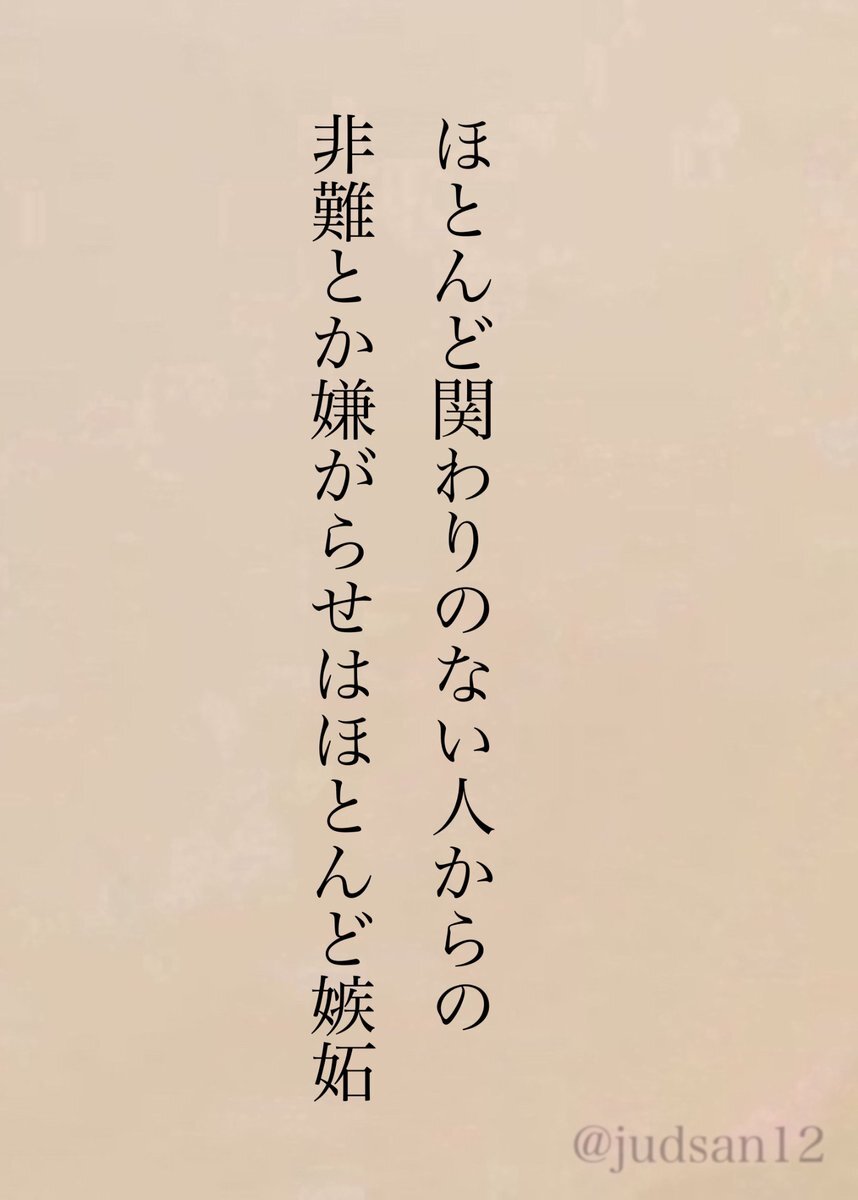 ほとんど関わりのない人からの
非難とか嫌がらせはほとんど嫉妬
@judsan12